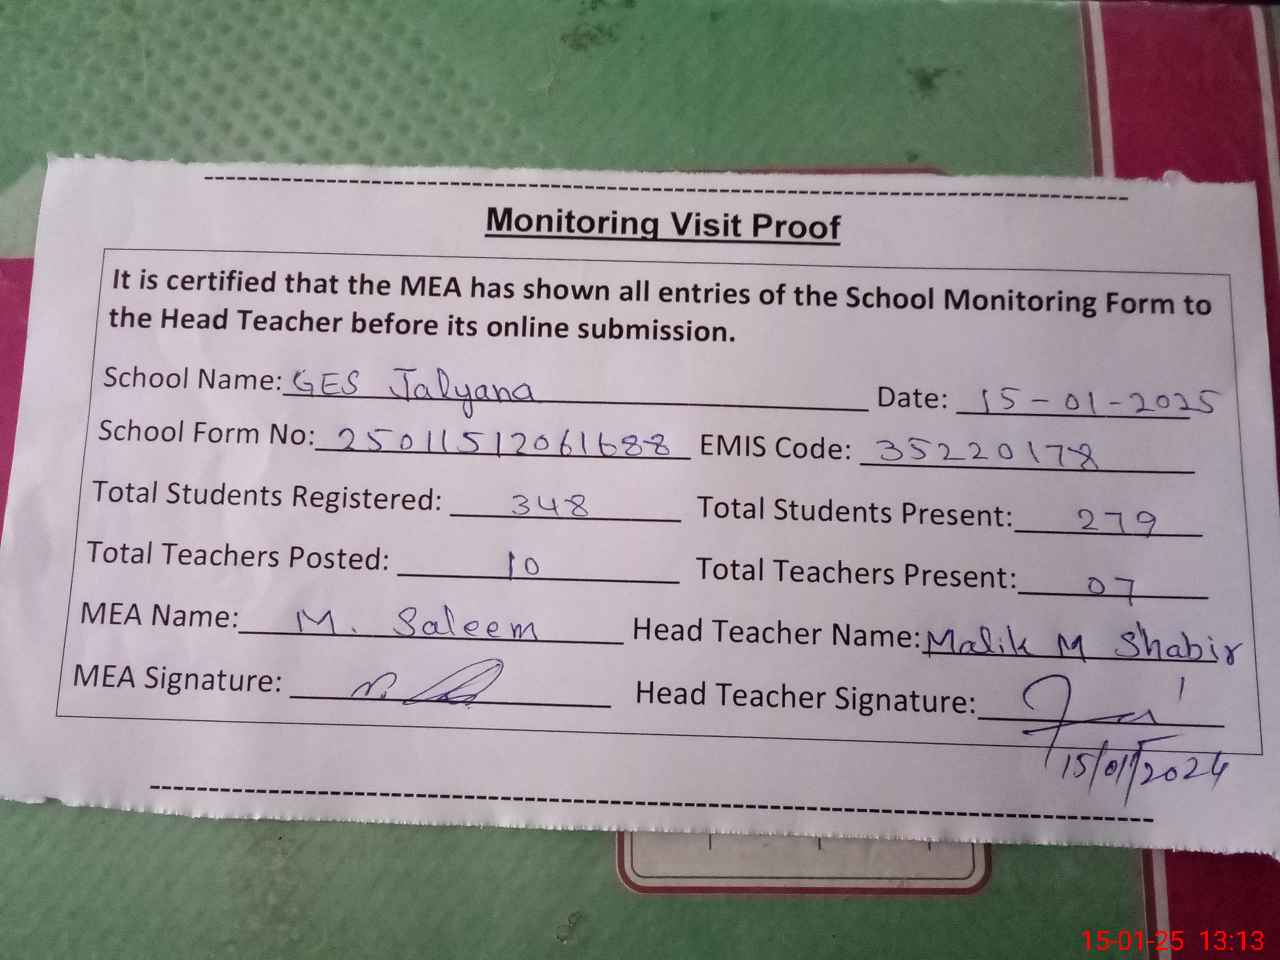 Monitoring Visit Proof
It is certified that the MEA has shown all entries of the School Monitoring Form to
the Head Teacher before its online submission.
School Name: GES Jalyana Date: 15-01-2025
School Form No: 25011512061688 EMIS Code: 35220178
Total Students Registered: 348 Total Students Present: 279
Total Teachers Posted: 10 Total Teachers Present: 07
MEA Name: M. Saleem Head Teacher Name: Malik M Shabir
MEA Signature: Head Teacher Signature:
15/01/2024
15-01-25 13:13